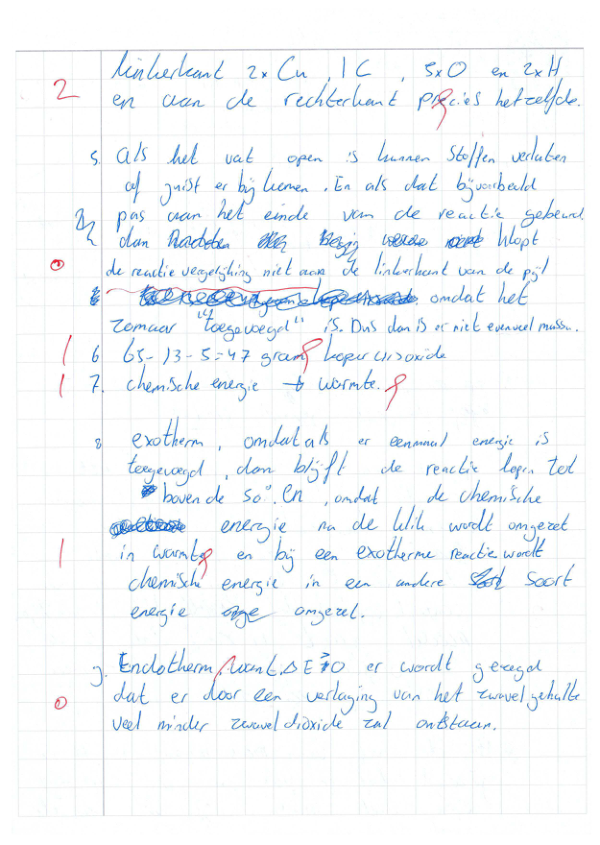 linkerkant 2x Cu, 1 C, 5xO en 2xH
2 en aan de rechterkant precies hetzelfde.
5. als het vat open is kunnen stoffen verlaten
of juist er bij komen. En als dat bijvoorbeeld
pas aan het einde van de reactie gebeurd
dan klopt
0 de reactie vergelijking niet aan de linkerkant van de pijl
omdat het
zomaar "toegevoegd" is. Dus dan is er niet evenveel massa.
1 6 65-13-5=47 gram koper
1 7. chemische energie → warmte.
8 exotherm, omdat als er eenmaal energie is
toegevoegd, dan blijft de reactie lopen tot
boven de 50°. En, omdat de chemische
energie na de klik wordt omgezet
1 in warmte en bij een exotherme reactie wordt
chemische energie in een andere soort
energie omgezet.
9. Endotherm, want ΔE>0 er wordt gezegd
0 dat er door een verlaging van het zwavelgehalte
veel minder zwaveldioxide zal ontstaan.